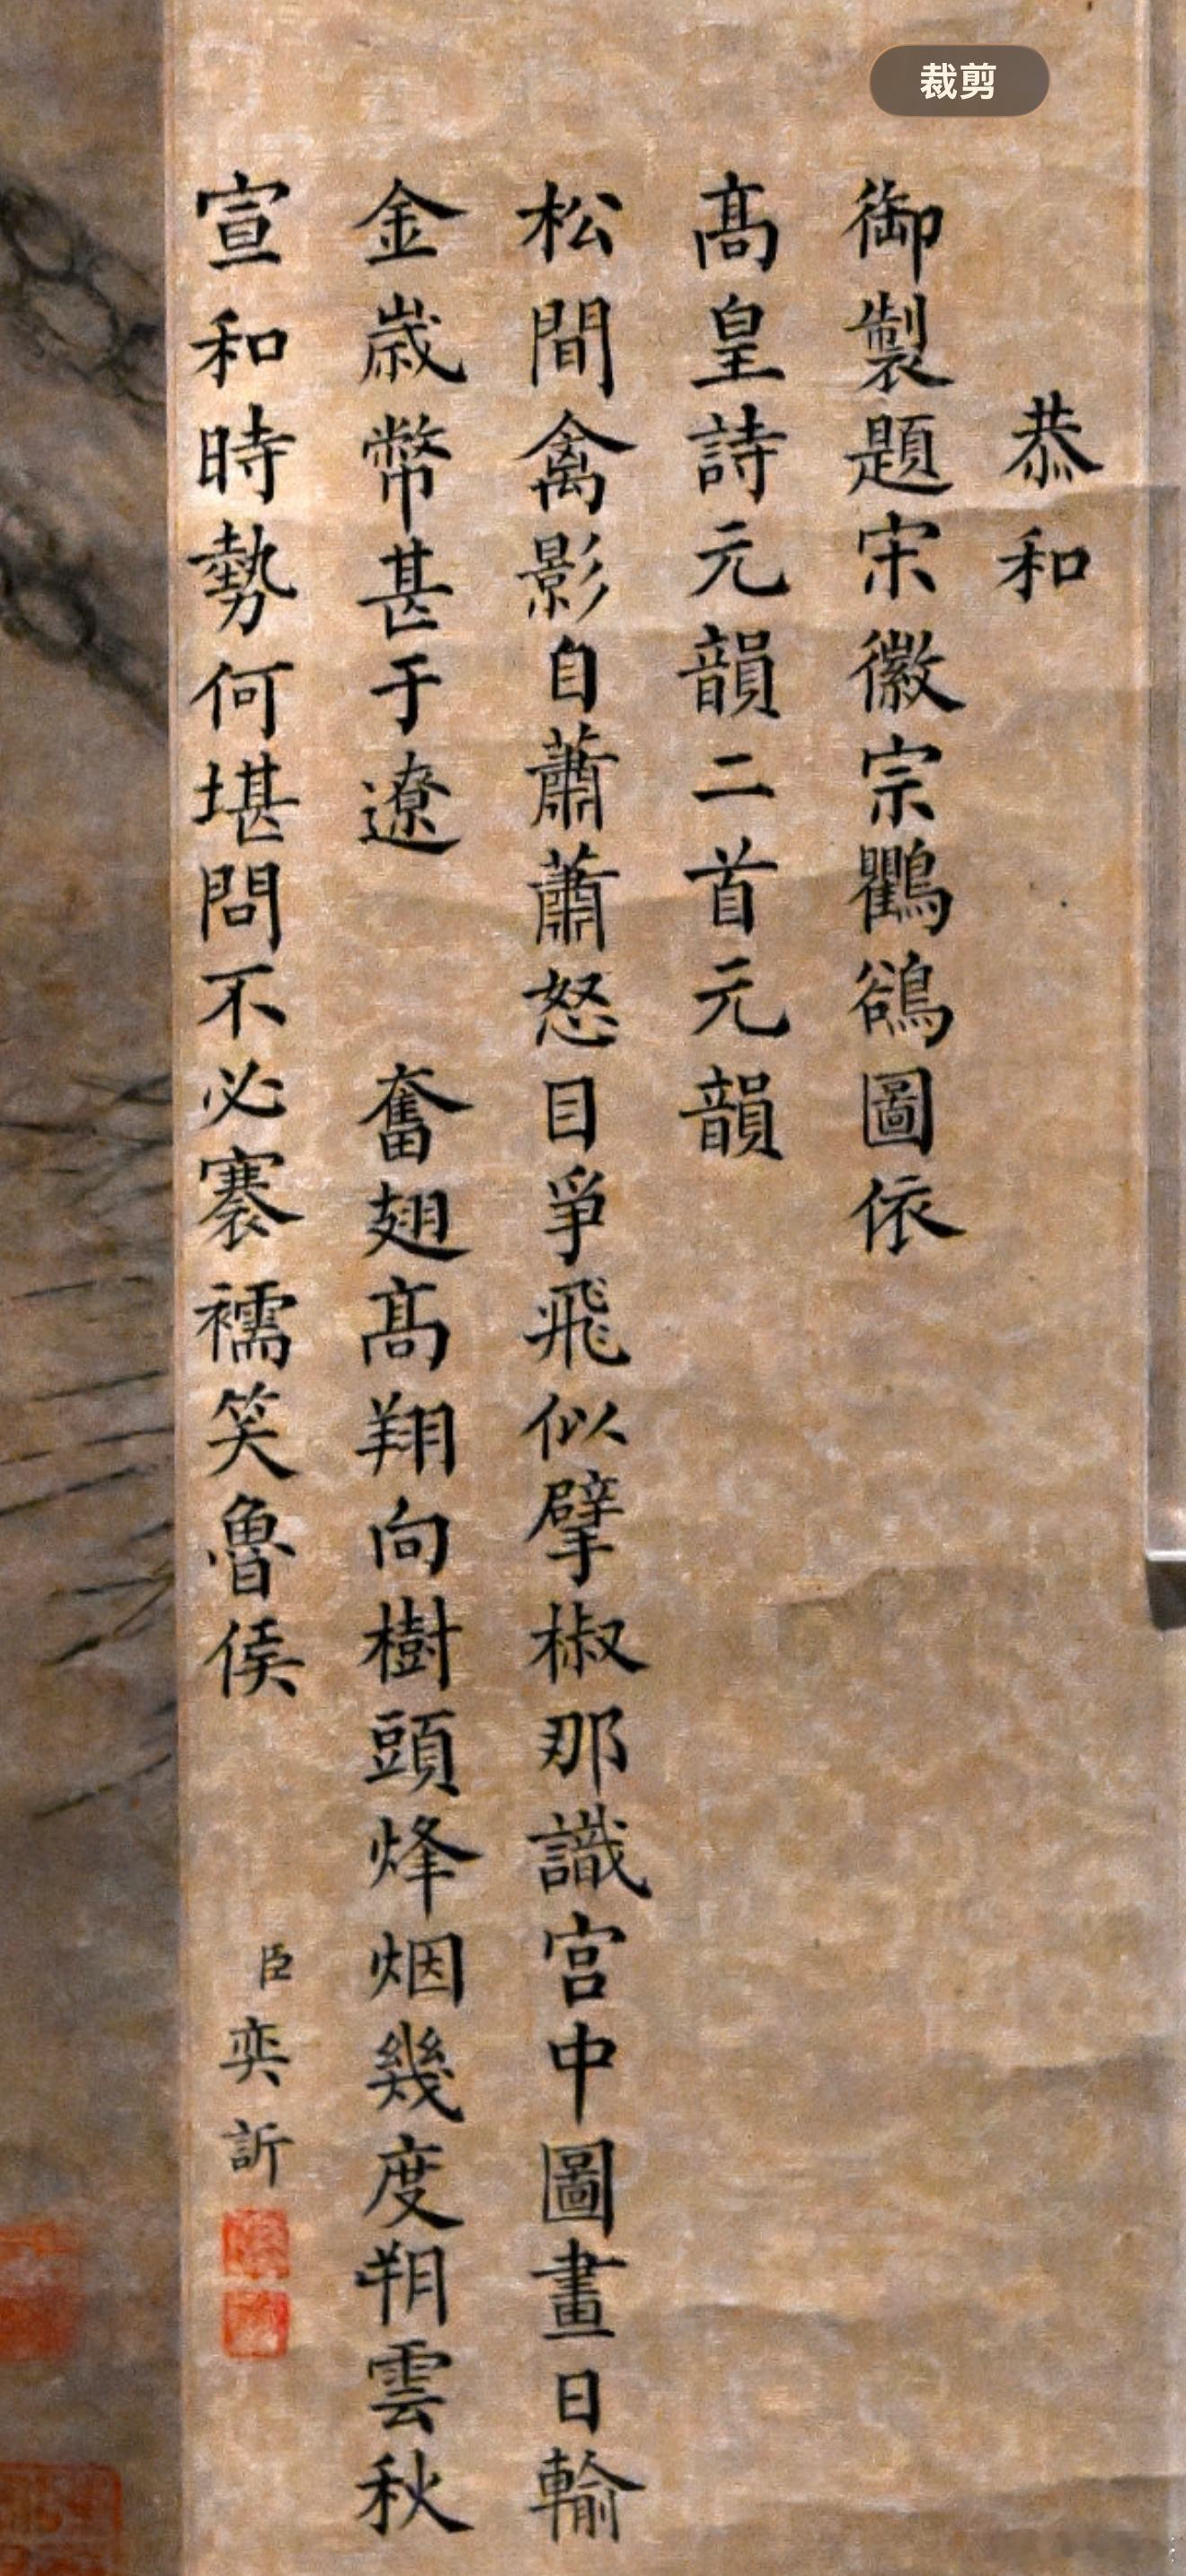 裁剪
恭和
御製題宋徽宗鸜鵒圖依
髙皇詩元韻二首元韻
松間禽影自蕭蕭怒目爭飛似擘椒那識宮中圖畫日輸
金歲幣甚于遼　奮翅髙翔向樹頭烽烟幾度朔雲秋
宣和時勢何堪問不必褰襦笑魯侯
臣奕訢